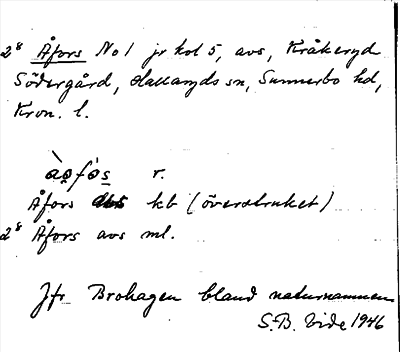 2⁸ Åfors No 1 jr kol 5, avs, Kråkeryd
Södergård, Hallaryds sn, Sunnerbo hd,
Kron. l.
àfo̱s̱ r.
Åfors kb (överstruket)
2⁸ Åfors avs ml.
Jfr Brohagen bland naturnamnen
S.B. Vide 1946